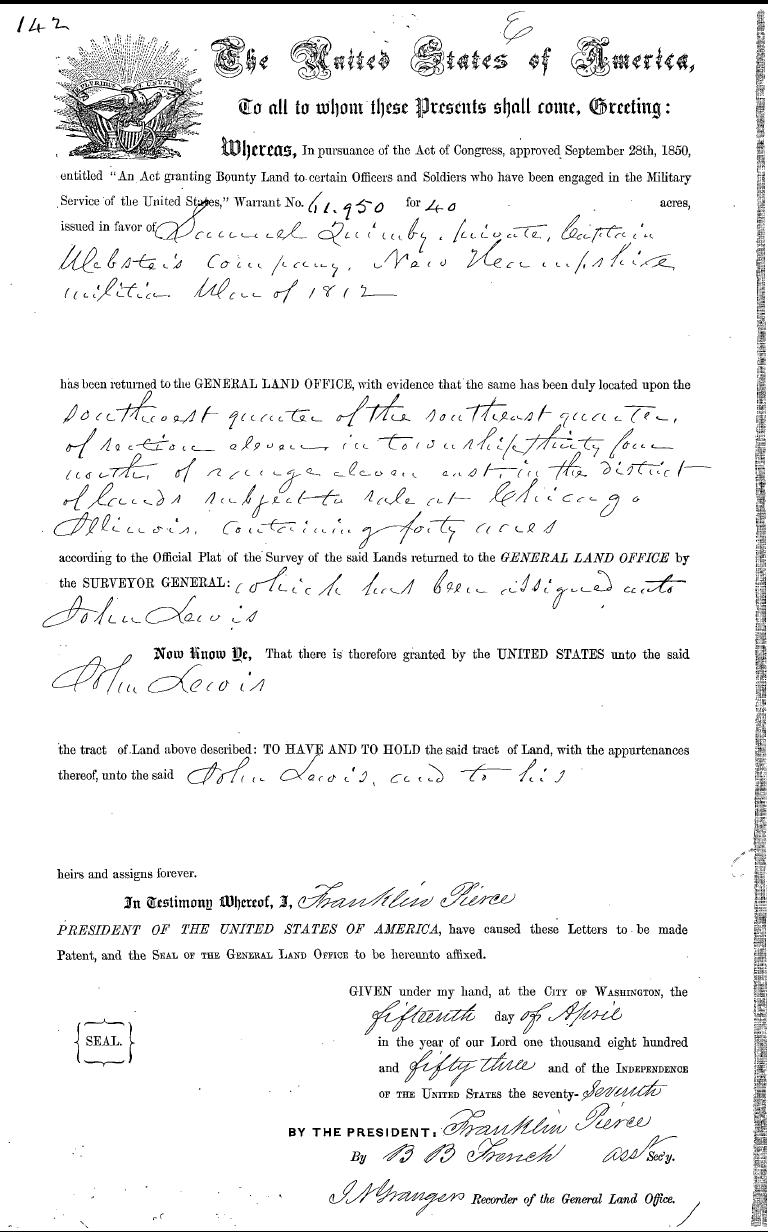 142
E
The United States of America,
PLURIBUS UNUM
To all to whom these Presents shall come, Greeting:
Whereas, In pursuance of the Act of Congress, approved September 28th, 1850,
entitled "An Act granting Bounty Land to certain Officers and Soldiers who have been engaged in the Military
Service of the United States," Warrant No. 61.950 for 40 acres,
issued in favor of Samuel Quimby, private, Captain
Webster's Company, New Hampshire
militia War of 1812
has been returned to the GENERAL LAND OFFICE, with evidence that the same has been duly located upon the
southwest quarter of the southeast quarter,
of section eleven, in township thirty four
north, of range eleven east, in the district
of lands subject to sale at Chicago
Illinois, containing forty acres
according to the Official Plat of the Survey of the said Lands returned to the GENERAL LAND OFFICE by
the SURVEYOR GENERAL: which has been assigned unto
John Lewis
Now Know Ye, That there is therefore granted by the UNITED STATES unto the said
John Lewis
the tract of Land above described: TO HAVE AND TO HOLD the said tract of Land, with the appurtenances
thereof, unto the said John Lewis, and to his
heirs and assigns forever.
In Testimony Whereof, I, Franklin Pierce
PRESIDENT OF THE UNITED STATES OF AMERICA, have caused these Letters to be made
Patent, and the SEAL OF THE GENERAL LAND OFFICE to be hereunto affixed.
GIVEN under my hand, at the CITY OF WASHINGTON, the
fifteenth day of April
SEAL. in the year of our Lord one thousand eight hundred
and fifty three and of the INDEPENDENCE
OF THE UNITED STATES the seventy-seventh
BY THE PRESIDENT: Franklin Pierce
By B B French asst Sec'y.
J N Granger Recorder of the General Land Office.